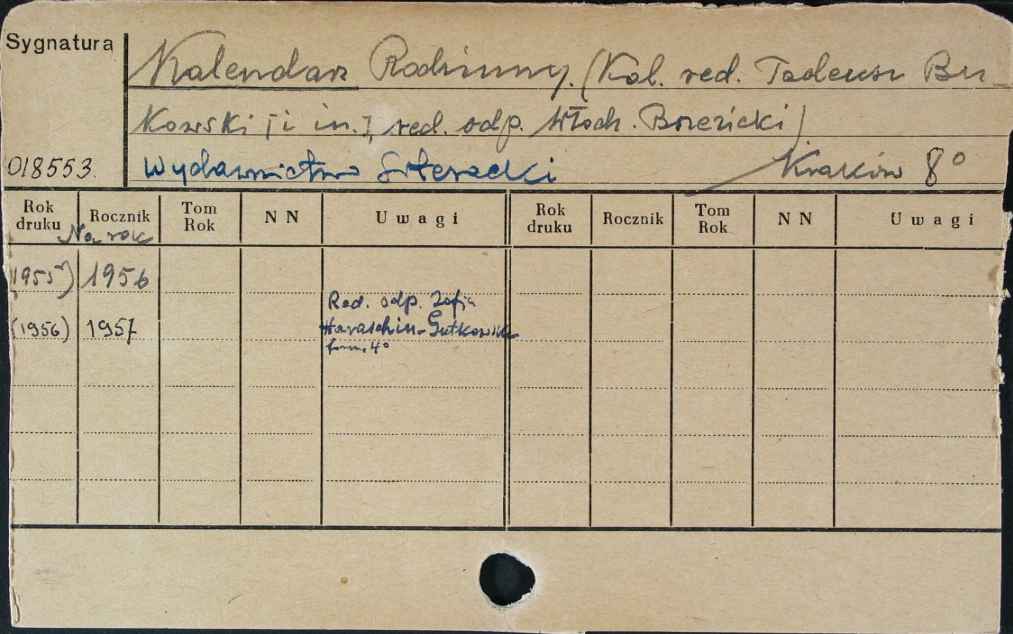 Sygnatura
Kalendarz Rodzinny. (Kol. red. Tadeusz Bu-
kowski [i in.], red. odp. Włodz.
018553
Wydawnictwo Literackie Kraków 8°
Rok druku Rocznik Tom Rok NN Uwagi Rok druku Rocznik Tom Rok NN Uwagi
Na rok
(1955) 1956
Red. odp. Zofia
(1956) 1957 Haraschin-Gutkowska
form. 4°